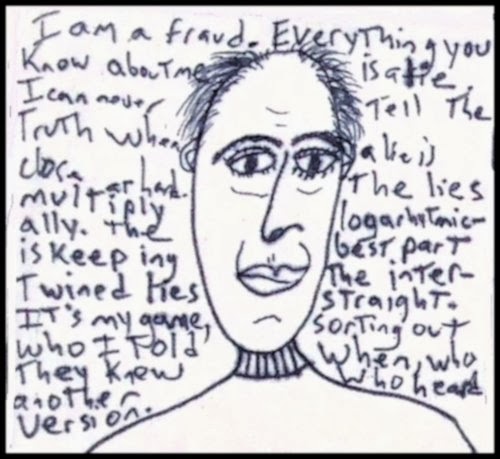 I am a fraud. Everything you
Know about me is a lie.
I can never Tell The
Truth when a lie is
close at hand. The lies
multiply logarhytmic-
ally. The best part
is Keeping The inter-
Twined lies straight.
IT's my game, sorting out
who I Told when, who
They Knew who heard
another
version.